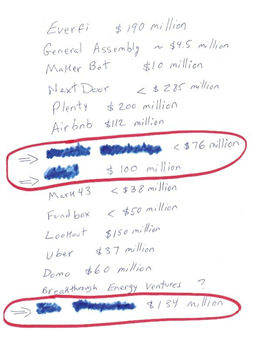 EverFi $190 million
General Assembly ~ $4.5 million
Maker Bot $10 million
Next Door < $285 million
Plenty $200 million
Airbnb $112 million
⇒ < $76 million
⇒ $100 million
Mark43 < $38 million
Fundbox < $50 million
Lookout $150 million
Uber $37 million
Domo $60 million
Breakthrough Energy Ventures ?
⇒ $134 million